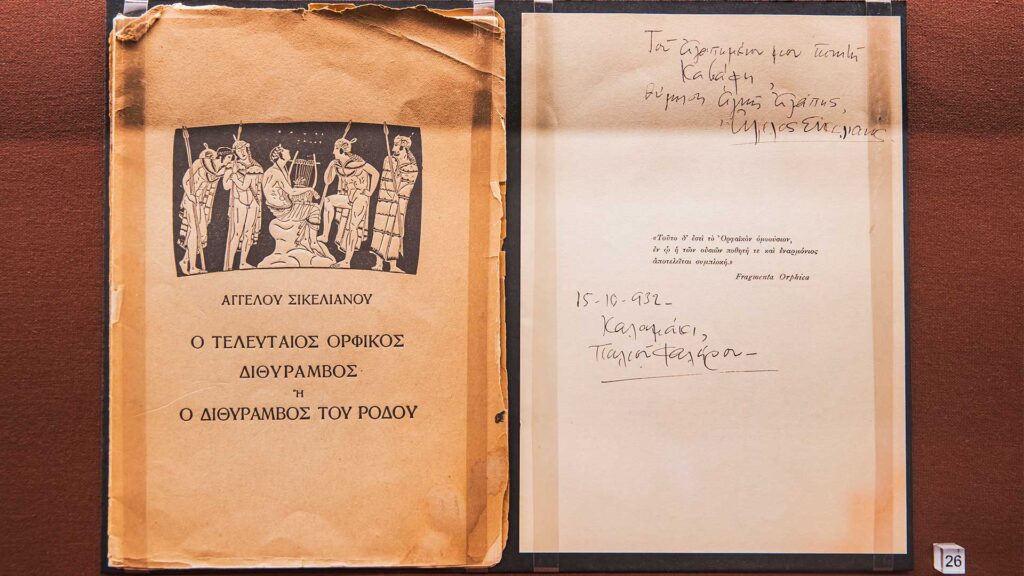 ΑΓΓΕΛΟΥ ΣΙΚΕΛΙΑΝΟΥ
Ο ΤΕΛΕΥΤΑΙΟΣ ΟΡΦΙΚΟΣ
ΔΙΘΥΡΑΜΒΟΣ
Ἢ
Ο ΔΙΘΥΡΑΜΒΟΣ ΤΟΥ ΡΟΔΟΥ
Τοῦ ἀγαπημένου μου ποιητῆ
Καβάφη,
ἀγάπης,
Ἄγγελος Σικελιανός
«Τοῦτο δ' ἐστὶ τὸ Ὀρφαϊκὸν ὁμοούσιον,
ἐν ᾧ ἡ τῶν οὐσιῶν ποθητή τε καὶ ἐναρμόνιος
ἀποτελεῖται συμπλοκή.»
Fragmenta Orphica
15-10-932-
Καλαμάκι,
Παλιοῦ Φαλήρου-
26